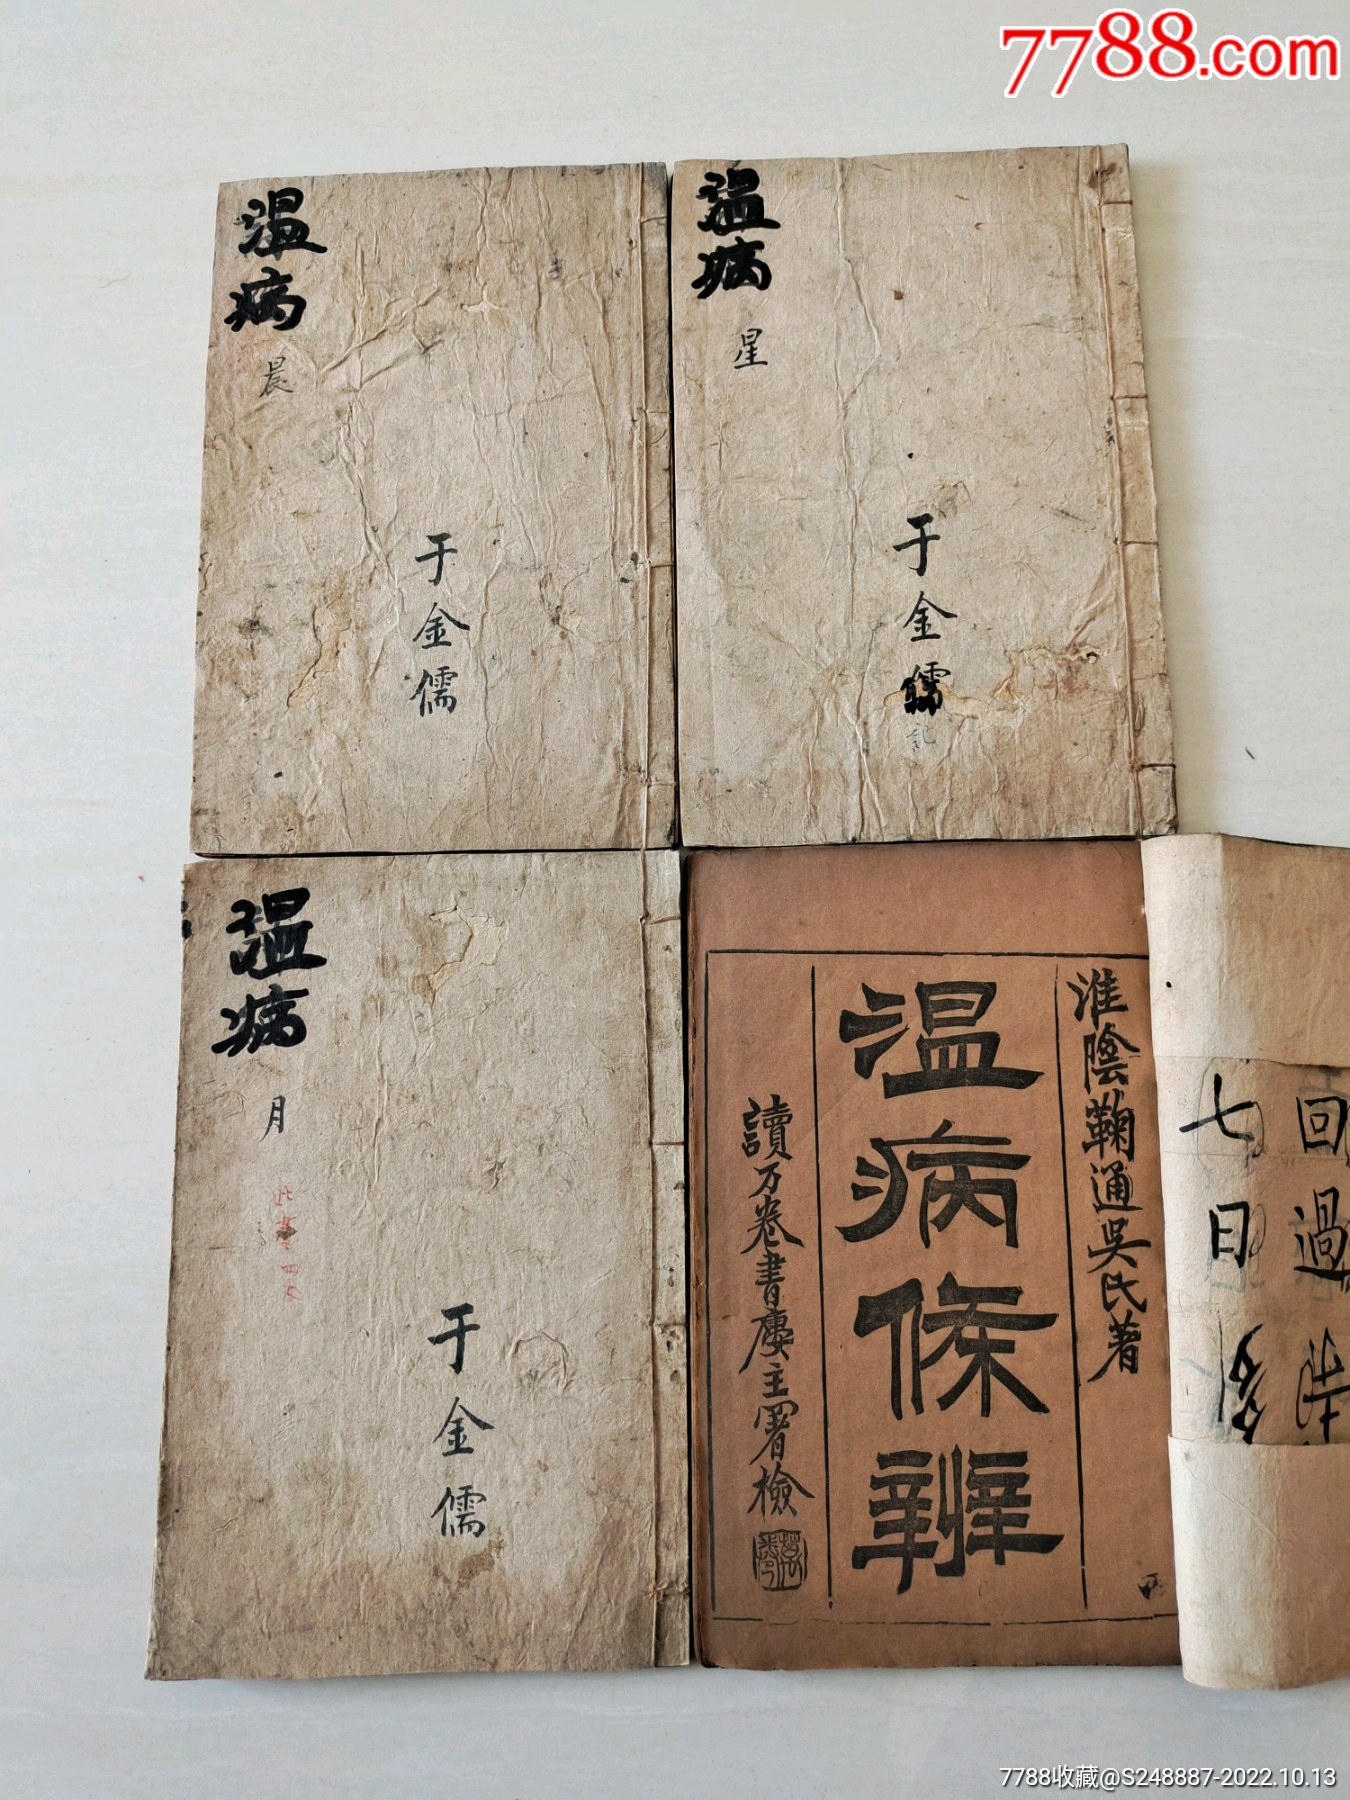 7788.com
温病
晨
于金儒
温病
星
于金儒
记
温病
月
此書四
于金儒
淮陰鞠通吳氏著
温病條辨
讀万卷書廔主署檢
回過
七日
7788收藏@S248887-2022.10.13